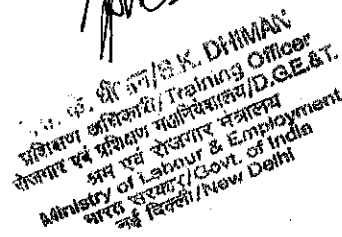 धीमान/B.K. DHIMAN
प्रशिक्षण अधिकारी/Training Officer
रोजगार एवं प्रशिक्षण महानिदेशालय/D.G.E.&T.
श्रम एवं रोजगार मंत्रालय
Ministry of Labour & Employment
भारत सरकार/Govt. of India
नई दिल्ली/New Delhi